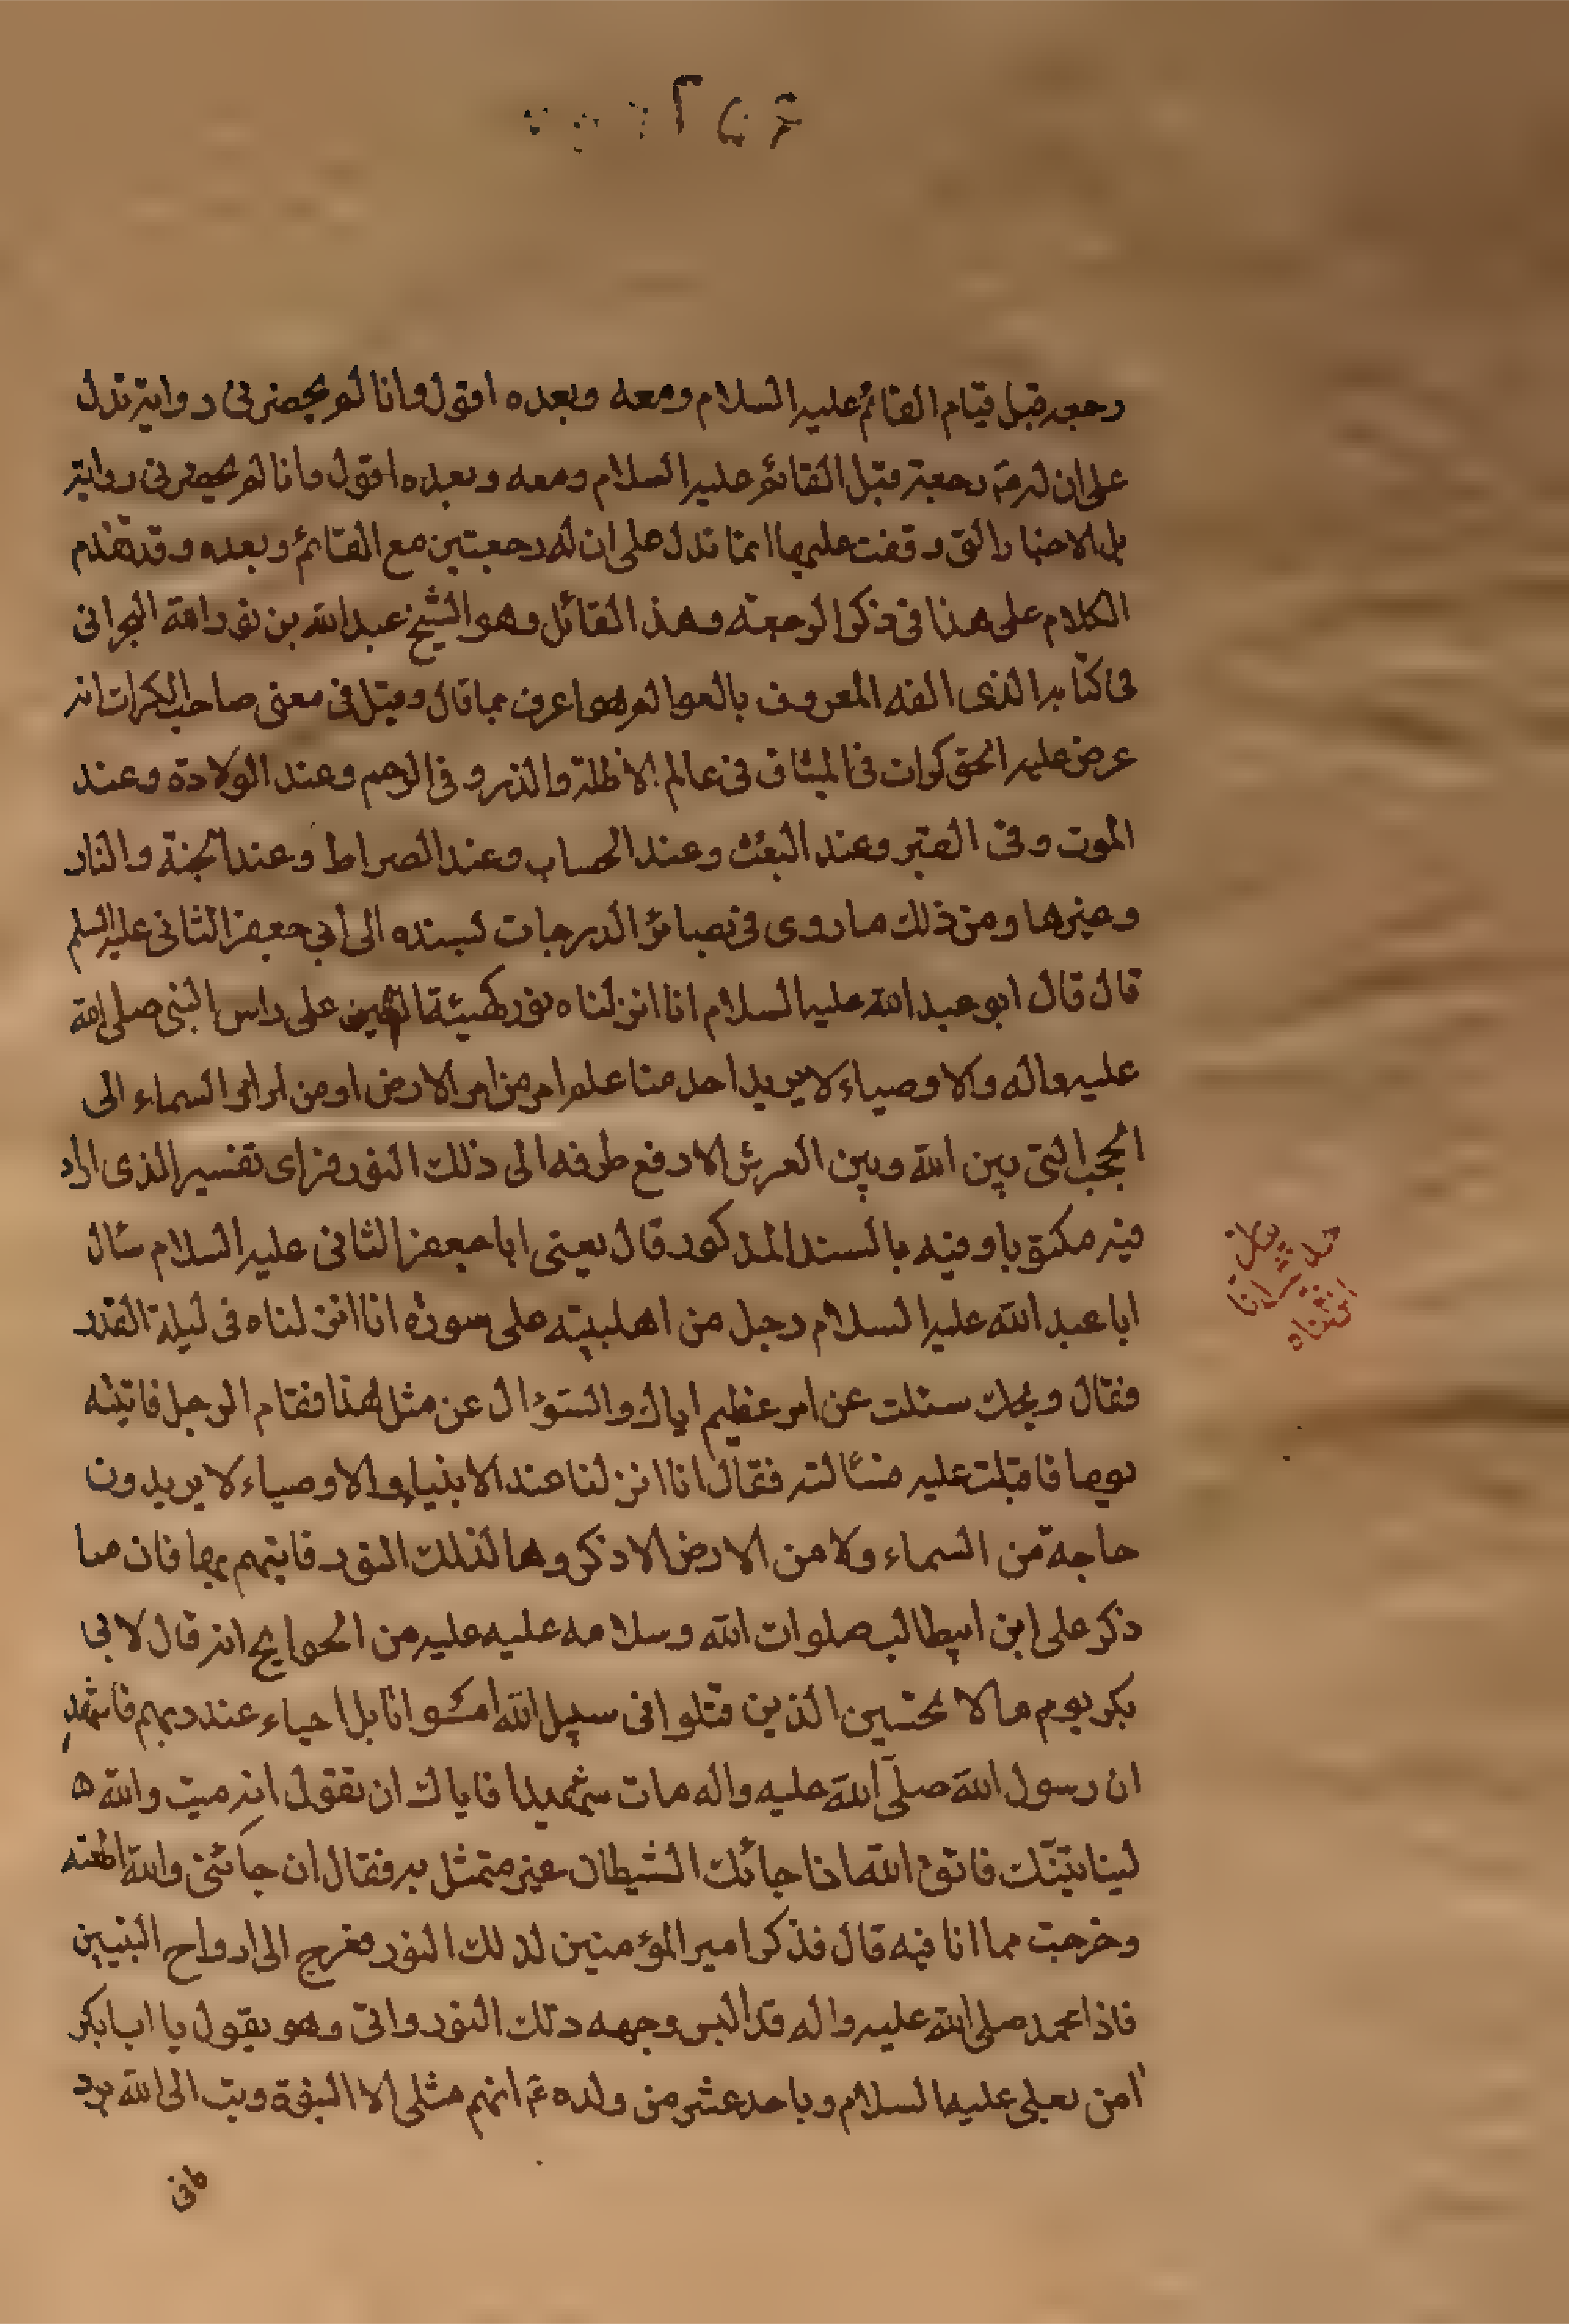 رجعه قبل قيام القائم عليه السلام ومعه وبعده اقول وانا لم يحضرنى رواية تدل
على ان له رجعة قبل القائم عليه السلام ومعه وبعده اقول وانا لم يحضرنى رواية
بل الاخبار التى وقفت عليها انما تدل على ان له رجعتين مع القائم وبعده وقد تقدم
الكلام على هذا فى ذكر الرجعة وهذا القائل وهو الشيخ عبد الله بن نور الله البحرانى
فى كتابه الذى الفه المعروف بالعوالم هو اعرف بما قال وقيل فى معنى صاحب الكرات انه
عرض عليه الحق كرات فى الميثاق فى عالم الاظلة والذر وفى الرحم وعند الولادة وعند
الموت وفى القبر وعند البعث وعند الحساب وعند الصراط وعند الجنة والنار
وغيرها ومن ذلك ما روى فى بصائر الدرجات بسنده الى ابي جعفر الثانى عليه السلم
قال قال ابو عبد الله عليه السلام انا انزلناه نور كهيئة العين على راس النبى صلى الله
عليه واله والاوصياء لا يريد احد منا علم امر من امر الارض او من امر السماء الى
الحجب التى بين الله وبين العرش الا رفع طرفه الى ذلك النور فراى تفسير الذى اراد
فيه مكتوبا وفيه بالسند المذكور قال يعنى ابا جعفر الثانى عليه السلام سئال
ابا عبد الله عليه السلام رجل من اهلبيته على سورة انا انزلناه فى ليلة القدر
فقال ويحك سئلت عن امر عظيم اياك والسؤال عن مثل هذا فقام الرجل فاتيته
يوما فاقبلت عليه فسئالته فقال انا انزلنا عند الانبياء والاوصياء لا يريدون
حاجة من السماء ولا من الارض الا ذكروها لذلك النور فاتيهم بها فان مما
ذكر على ابن ابيطالب صلوات الله وسلامه عليه عليه من الحوايج انه قال لابى
بكر يوما لا تحسبن الذين قتلوا فى سبيل الله امواتا بل احياء عند ربهم فاشهد
ان رسول الله صلى الله عليه واله مات شهيدا فاياك ان تقول انه ميت والله
لياتينك فاتق الله اذا جائك الشيطان غير متمثل به فقال ان جائنى والله اطعته
وخرجت مما انا فيه قال فذكر امير المؤمنين لذلك النور فعرج الى ارواح النبيين
فاذا محمد صلى الله عليه واله قد البس وجهه ذلك النور واتى وهو يقول يا ابا بكر
امن بعلى عليه السلام وباحد عشر من ولده عم انهم مثلى الا النبوة وتب الى الله برد